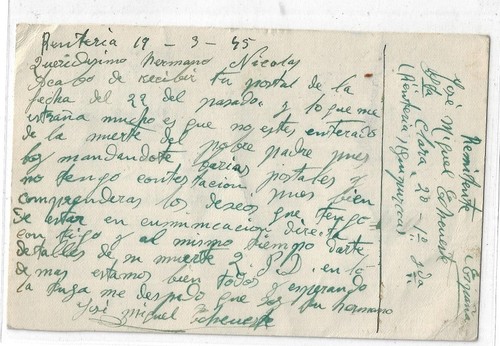 Renteria 19 - 3 - 45
Queridisimo hermano Nicolas
Acabo de recibir tu postal de la
fecha del 22 del pasado. y lo que me
estraña mucho es que no estes enterado
de la muerte del pobre padre pues
mandandote varias postales y
no tengo contestacion pues bien
comprenderas los deseos que tengo
de estar en comunicacion directa
contigo y al mismo tiempo darte
detalles de su muerte en lo
demas estamos bien todos y esperando
la tuya me despido que soy tu hermano
José Miguel Echeveste
Remitente
José Miguel Echeveste
Sta Clara 20 - 1º Dda
Renteria (Guipuzcoa)
España